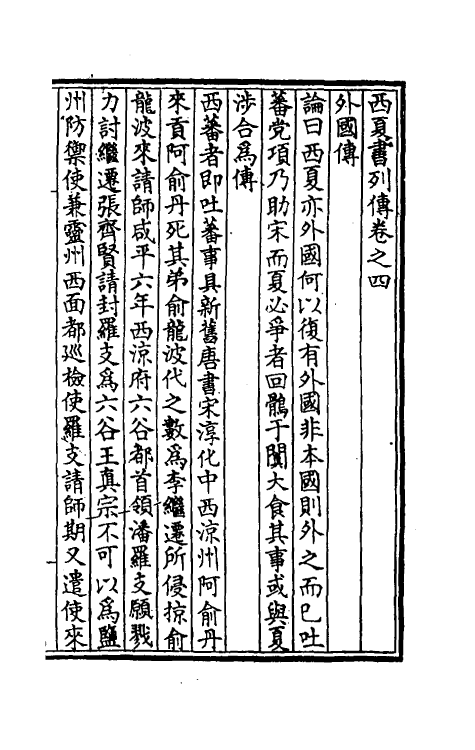 西夏書列傳卷之四
外國傳
論曰西夏亦外國何以復有外國非本國則外之而已吐
蕃党項乃助宋而夏必爭者回鶻于闐大食其事或與夏
涉合爲傳
西蕃者即吐蕃事具新舊唐書宋淳化中西涼州阿俞丹
來貢阿俞丹死其弟俞龍波代之數爲李繼遷所侵掠俞
龍波來請師咸平六年西涼府六谷都首領潘羅支願戮
力討繼遷張齊賢請封羅支爲六谷王真宗不可以爲鹽
州防禦使兼靈州西面都巡檢使羅支請師期又遣使來